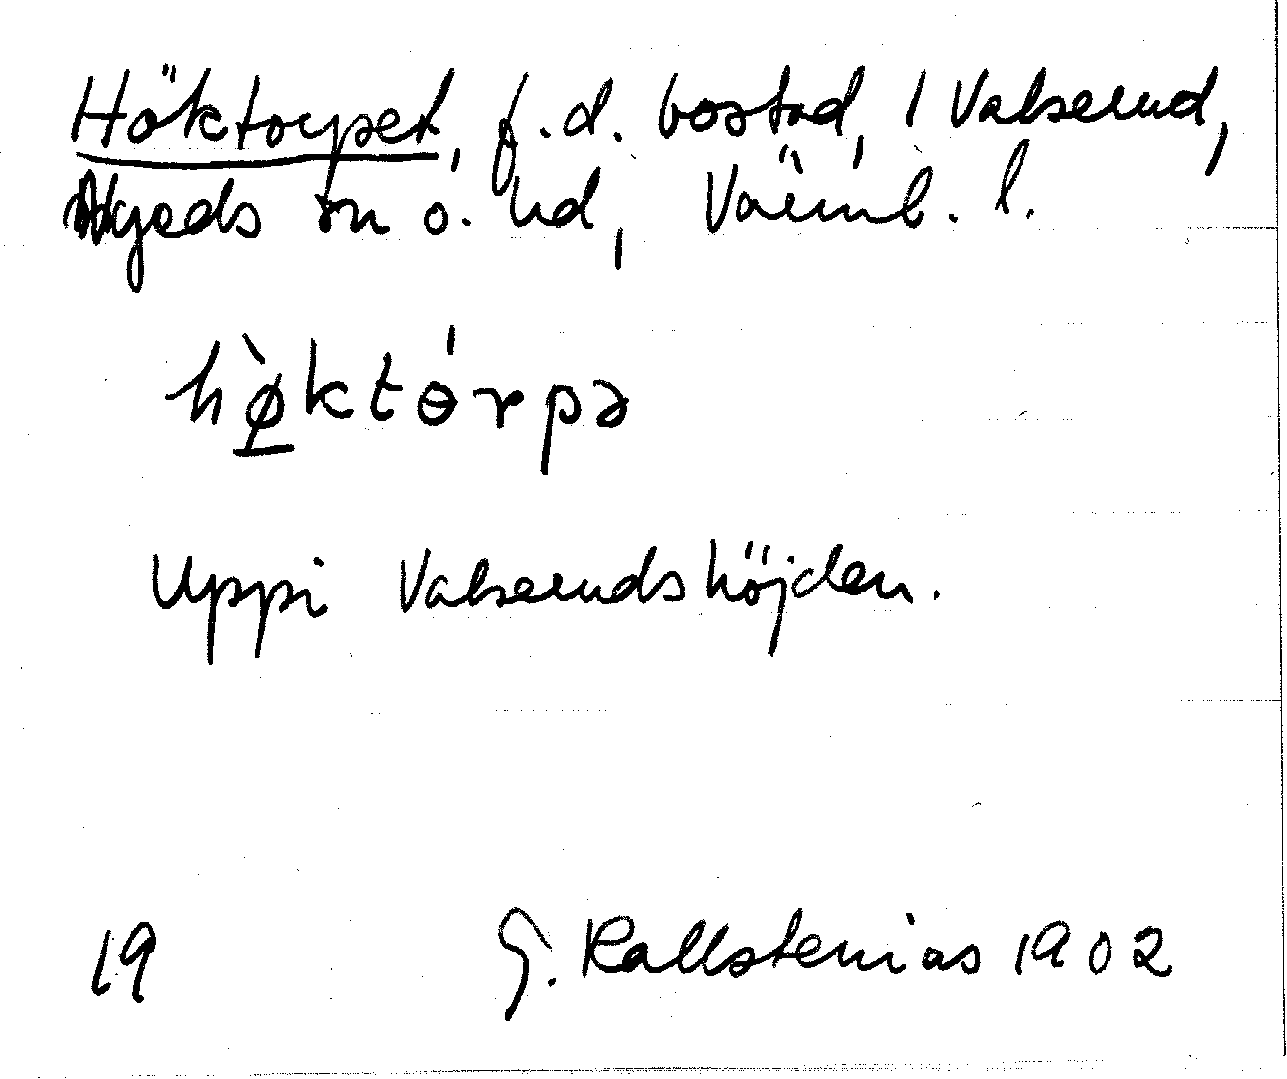 Höktorpet, f.d. bostad, 1 Valserud,
Nyeds sn o. hd, Värml. l.
hø̱̀ktɵ́rpə
Uppi Valserudshöjden.
19 G. Kallstenius 1902